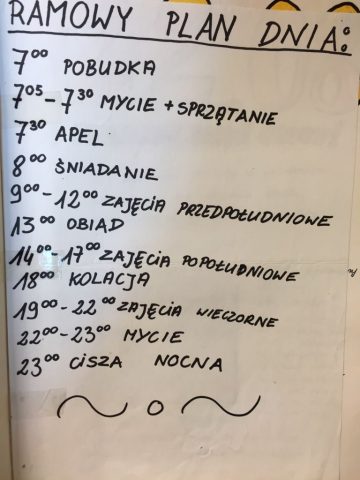 RAMOWY PLAN DNIA:
7⁰⁰ POBUDKA
7⁰⁵ - 7³⁰ MYCIE + SPRZĄTANIE
7³⁰ APEL
8⁰⁰ ŚNIADANIE
9⁰⁰ - 12⁰⁰ ZAJĘCIA PRZEDPOŁUDNIOWE
13⁰⁰ OBIAD
14⁰⁰ - 17⁰⁰ ZAJĘCIA POPOŁUDNIOWE
18⁰⁰ KOLACJA
19⁰⁰ - 22⁰⁰ ZAJĘCIA WIECZORNE
22⁰⁰ - 23⁰⁰ MYCIE
23⁰⁰ CISZA NOCNA